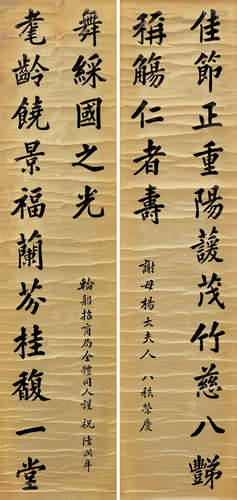 佳節正重陽護茂竹慈八豑
稱觴仁者壽
謝母楊太夫人 八秩榮慶
耄齡饒景福蘭芬桂馥一堂
舞綵國之光
輪船招商局全體同人謹祝 陸潤庠